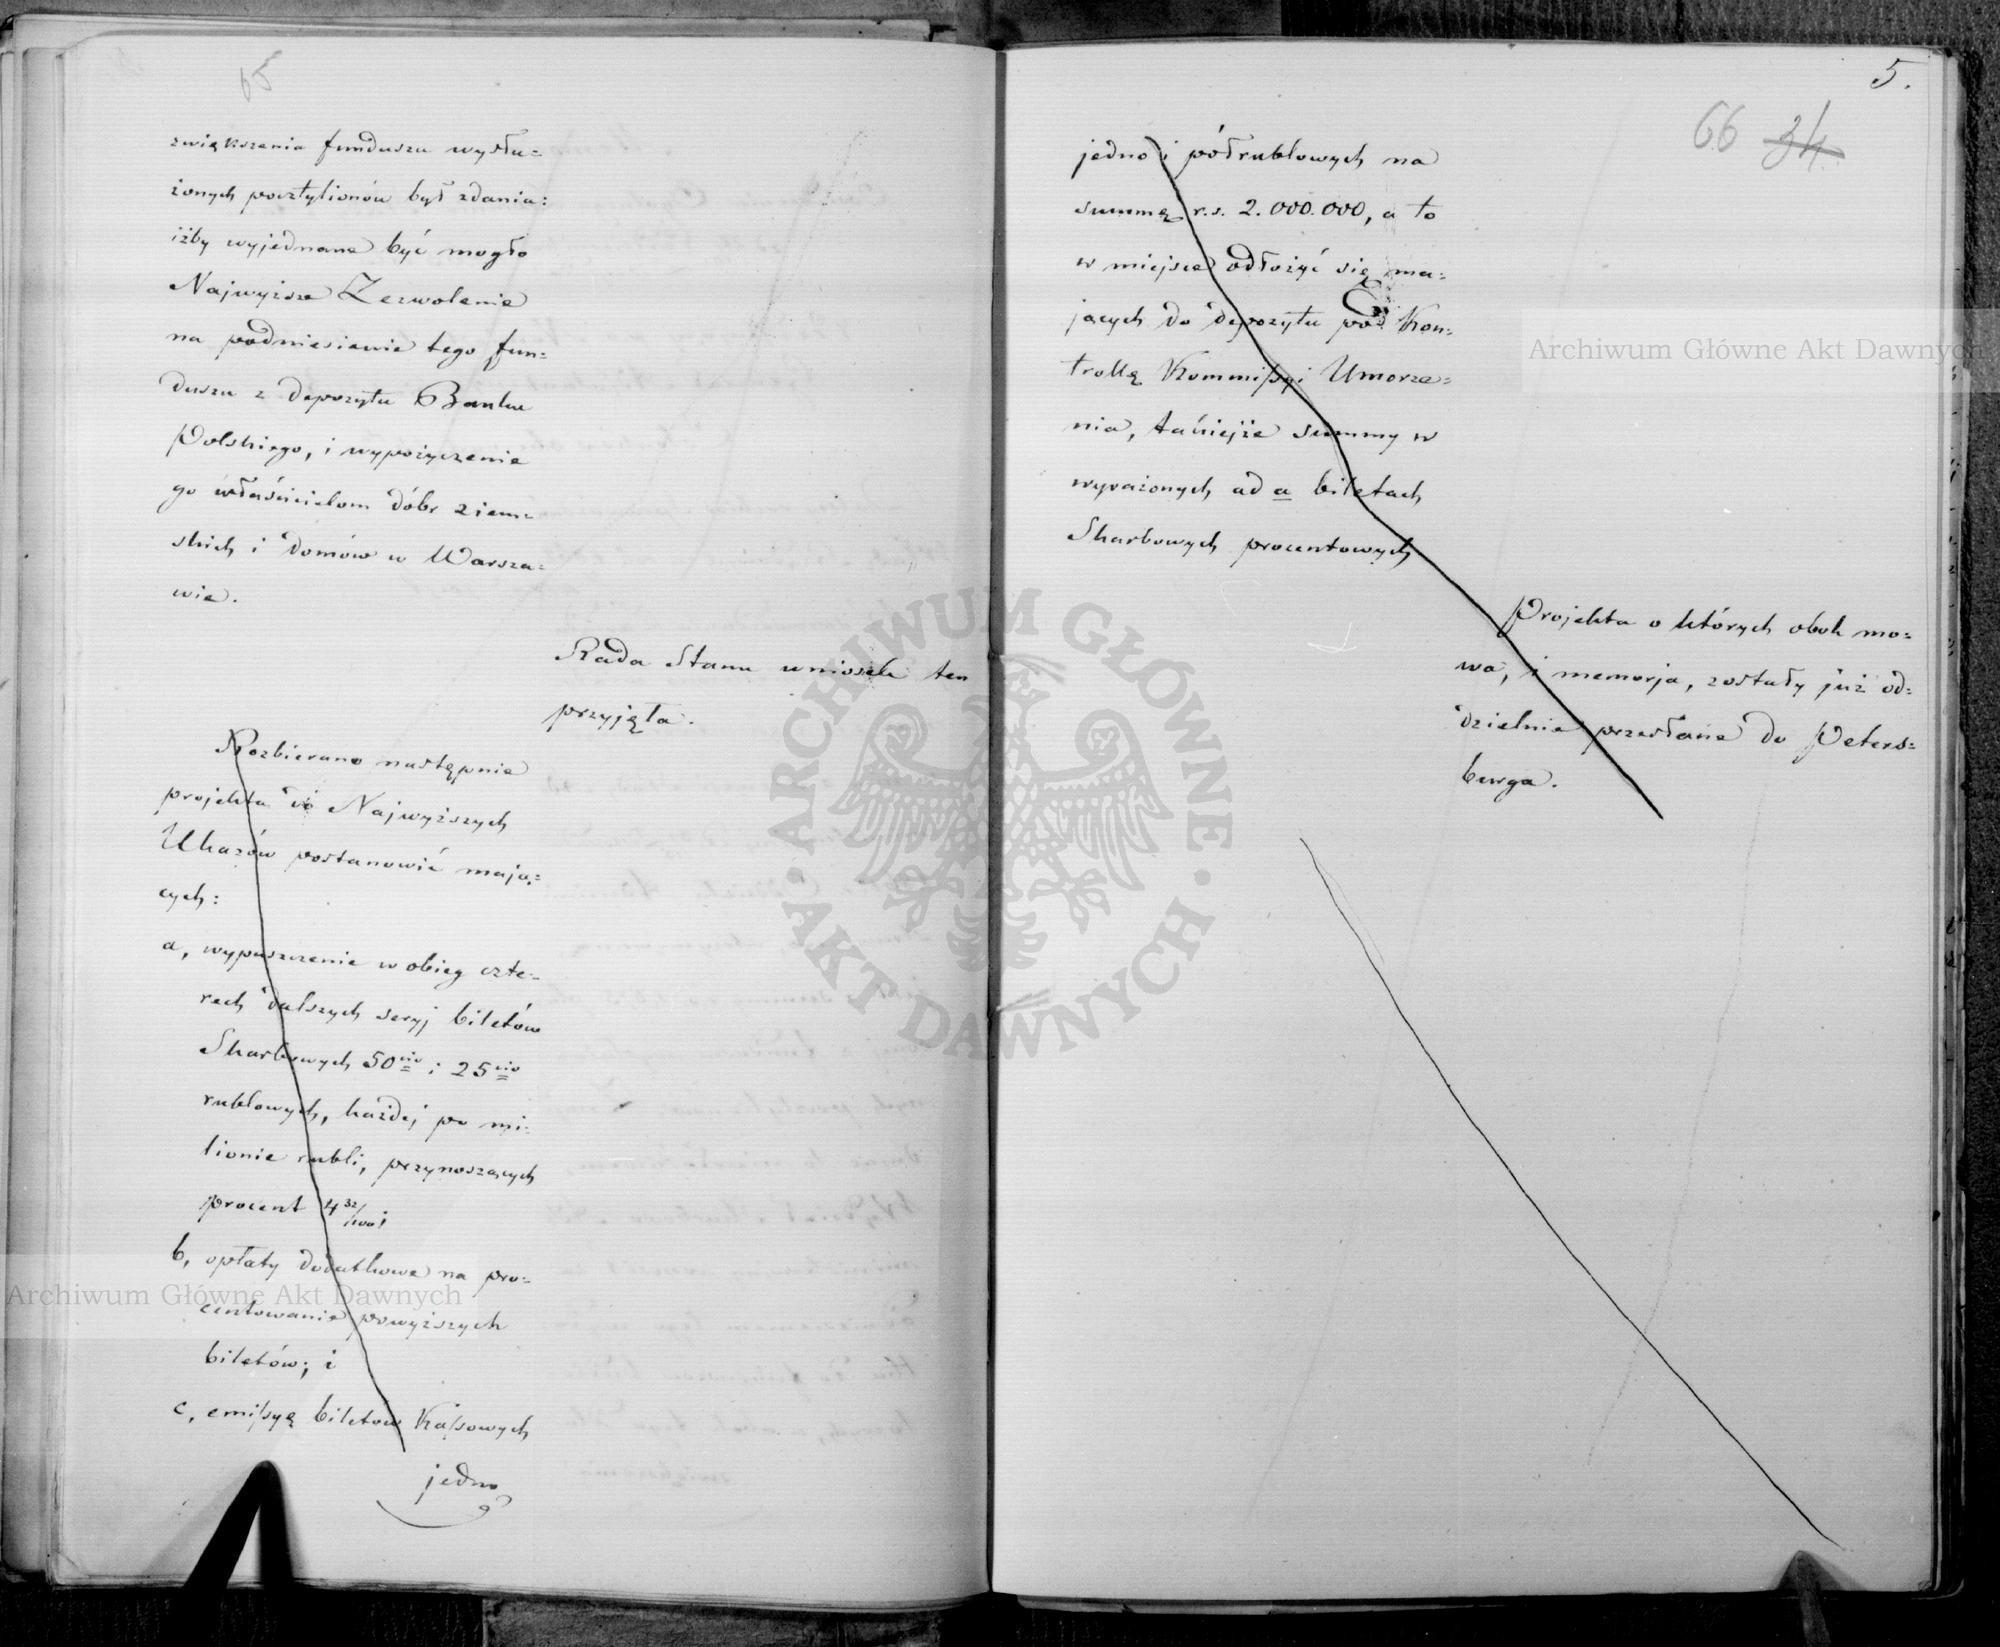 65
zwiększenia funduszu wysłu=
żonych pocztylionów był zdania:
iżby wyjednane być mogło
Najwyższe Zezwolenie
na podniesienie tego fun=
duszu z depozytu Banku
Polskiego, i wypożyczenie
go właścicielom dóbr ziem=
skich i domów w Warsza=
wie.
Rada Stanu wniosek ten
przyjęła.
Rozbierano następnie
projekta do Najwyższych
Ukazów postanowić mają=
cych:
a, wypuszczenie w obieg czte=
rech dalszych seryj biletów
Skarbowych 50cio i 25cio
rublowych, każdej po mi=
lionie rubli, przynoszących
procent 4 32/100;
b, opłaty dodatkowe na pro=
centowanie powyższych
biletów; i
c, emissyę biletów Kassowych
jedno
5.
66 34
jedno i półrublowych na
summę r.s. 2.000.000, a to
w miejsce odłożyć się ma=
jących do depozytu pod Kon=
trollą Kommissyi Umorze=
nia, takiejże summy w
wyrażonych ad a biletach
Skarbowych procentowych
Projekta o których obok mo=
wa, i memorja, zostały już od=
dzielnie przesłane do Peters=
burga.
Archiwum Główne Akt Dawnych
Archiwum Główne Akt Dawnych
ARCHIWUM GŁÓWNE
AKT DAWNYCH